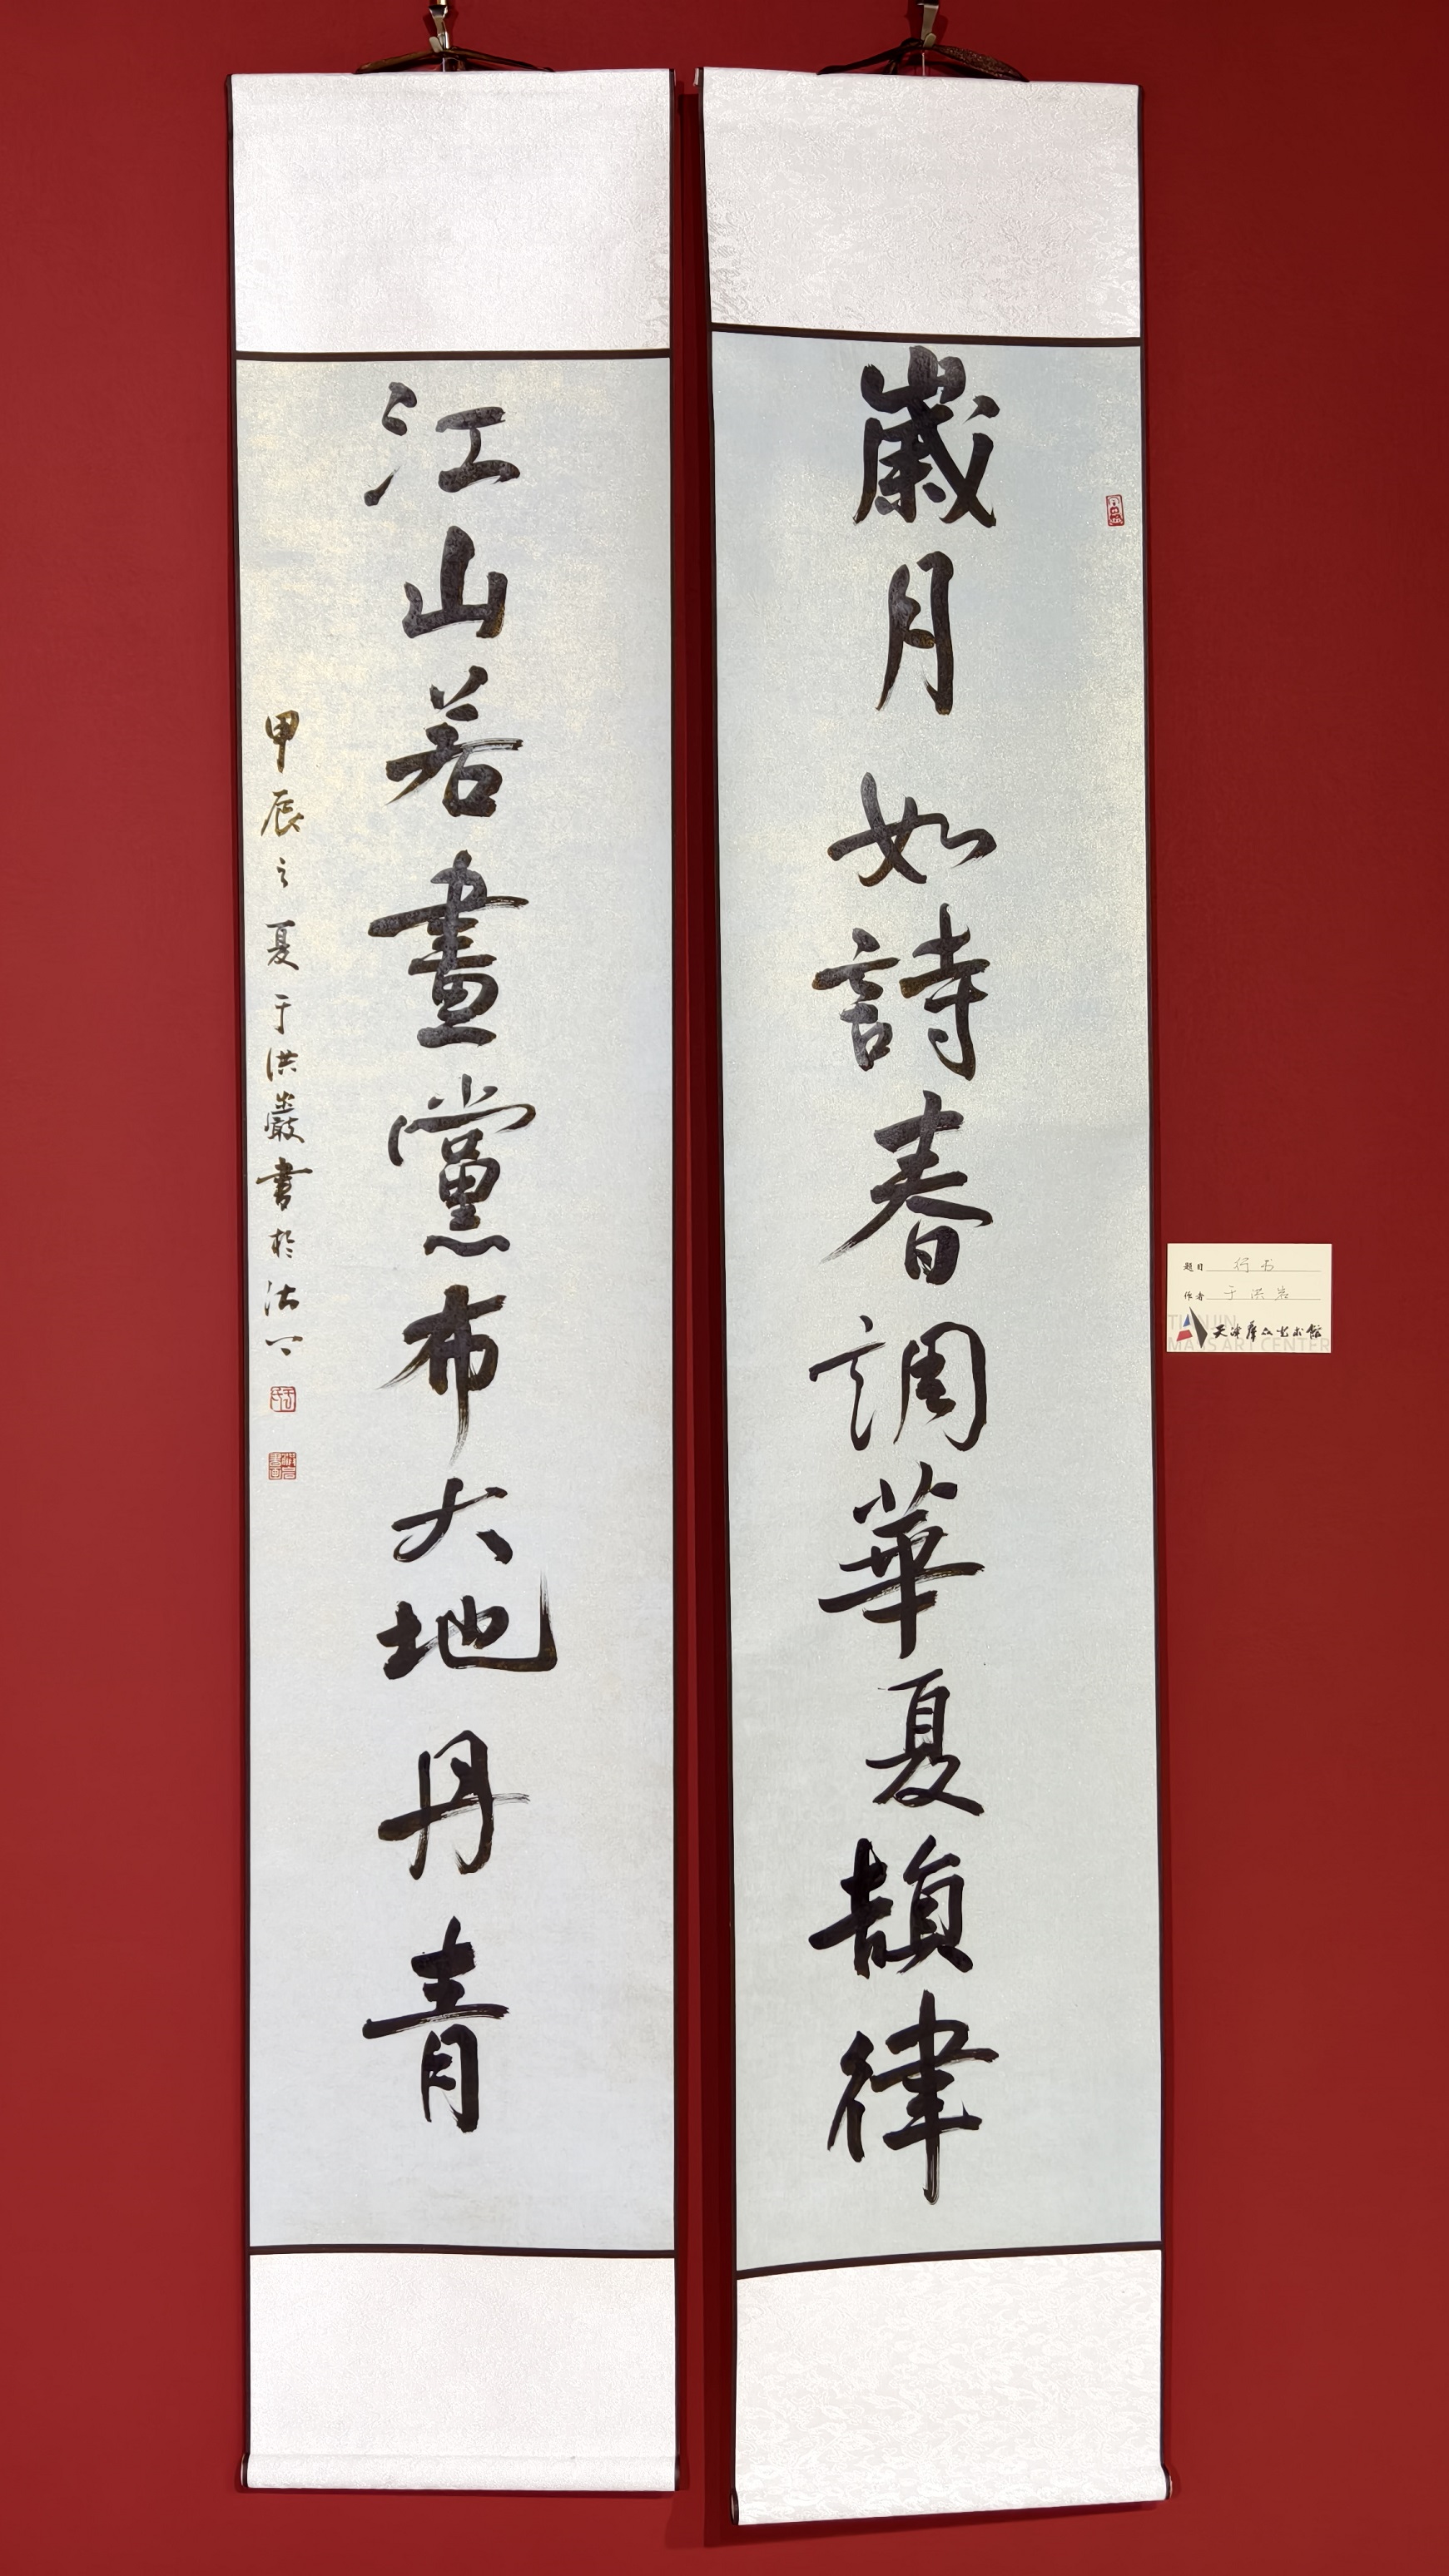 歲月如詩春調華夏韻律
江山若畫黨布大地丹青
甲辰之夏于洪巖書於沽上
題目 行书
作者 于洪岩
天津群众艺术馆
TIANJIN
MASS ART CENTER